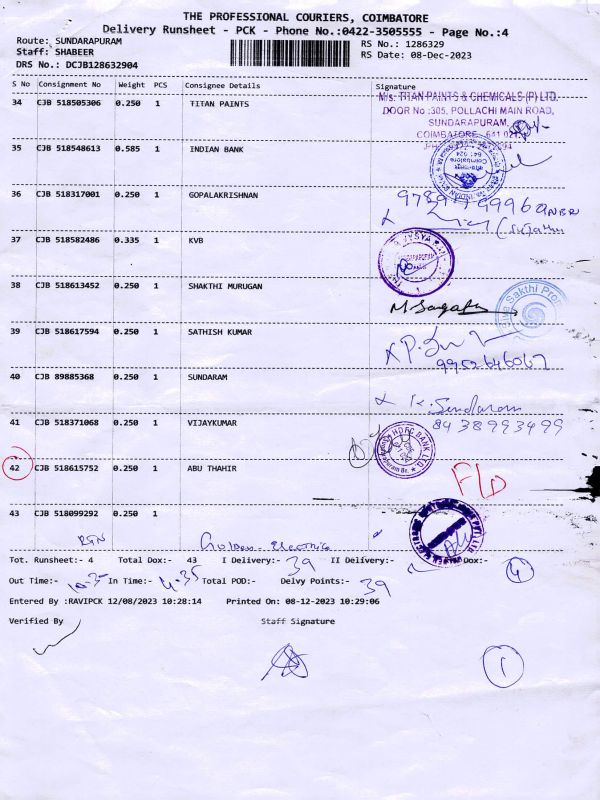 THE PROFESSIONAL COURIERS, COIMBATORE
Delivery Runsheet - PCK - Phone No.:0422-3505555 - Page No.:4
Route: SUNDARAPURAM
RS No.: 1286329
Staff: SHABEER
RS Date: 08-Dec-2023
DRS No.: DCJB128632904
S No Consignment No Weight PCS Consignee Details Signature
34 CJB 518505306 0.250 1 TITAN PAINTS
M/s. TITAN PAINTS & CHEMICALS (P) LTD.
DOOR No :305, POLLACHI MAIN ROAD,
SUNDARAPURAM,
COIMBATORE - 641 024
35 CJB 518548613 0.585 1 INDIAN BANK
36 CJB 518317001 0.250 1 GOPALAKRISHNAN
37 CJB 518582486 0.335 1 KVB
VYSYA
38 CJB 518613452 0.250 1 SHAKTHI MURUGAN
Sakthi
39 CJB 518617594 0.250 1 SATHISH KUMAR
9952646067
40 CJB 89885368 0.250 1 SUNDARAM
K. Sundaram
8438993499
41 CJB 518371068 0.250 1 VIJAYKUMAR
HDFC BANK LTD.
42 CJB 518615752 0.250 1 ABU THAHIR
F/D
43 CJB 518099292 0.250 1
RTN
Tot. Runsheet:- 4 Total Dox:- 43 I Delivery:- 39 II Delivery:- Dox:- 4
Out Time:- 10-35 In Time:- 4-35 Total POD:- Delvy Points:- 39
Entered By :RAVIPCK 12/08/2023 10:28:14 Printed On: 08-12-2023 10:29:06
Verified By Staff Signature
1